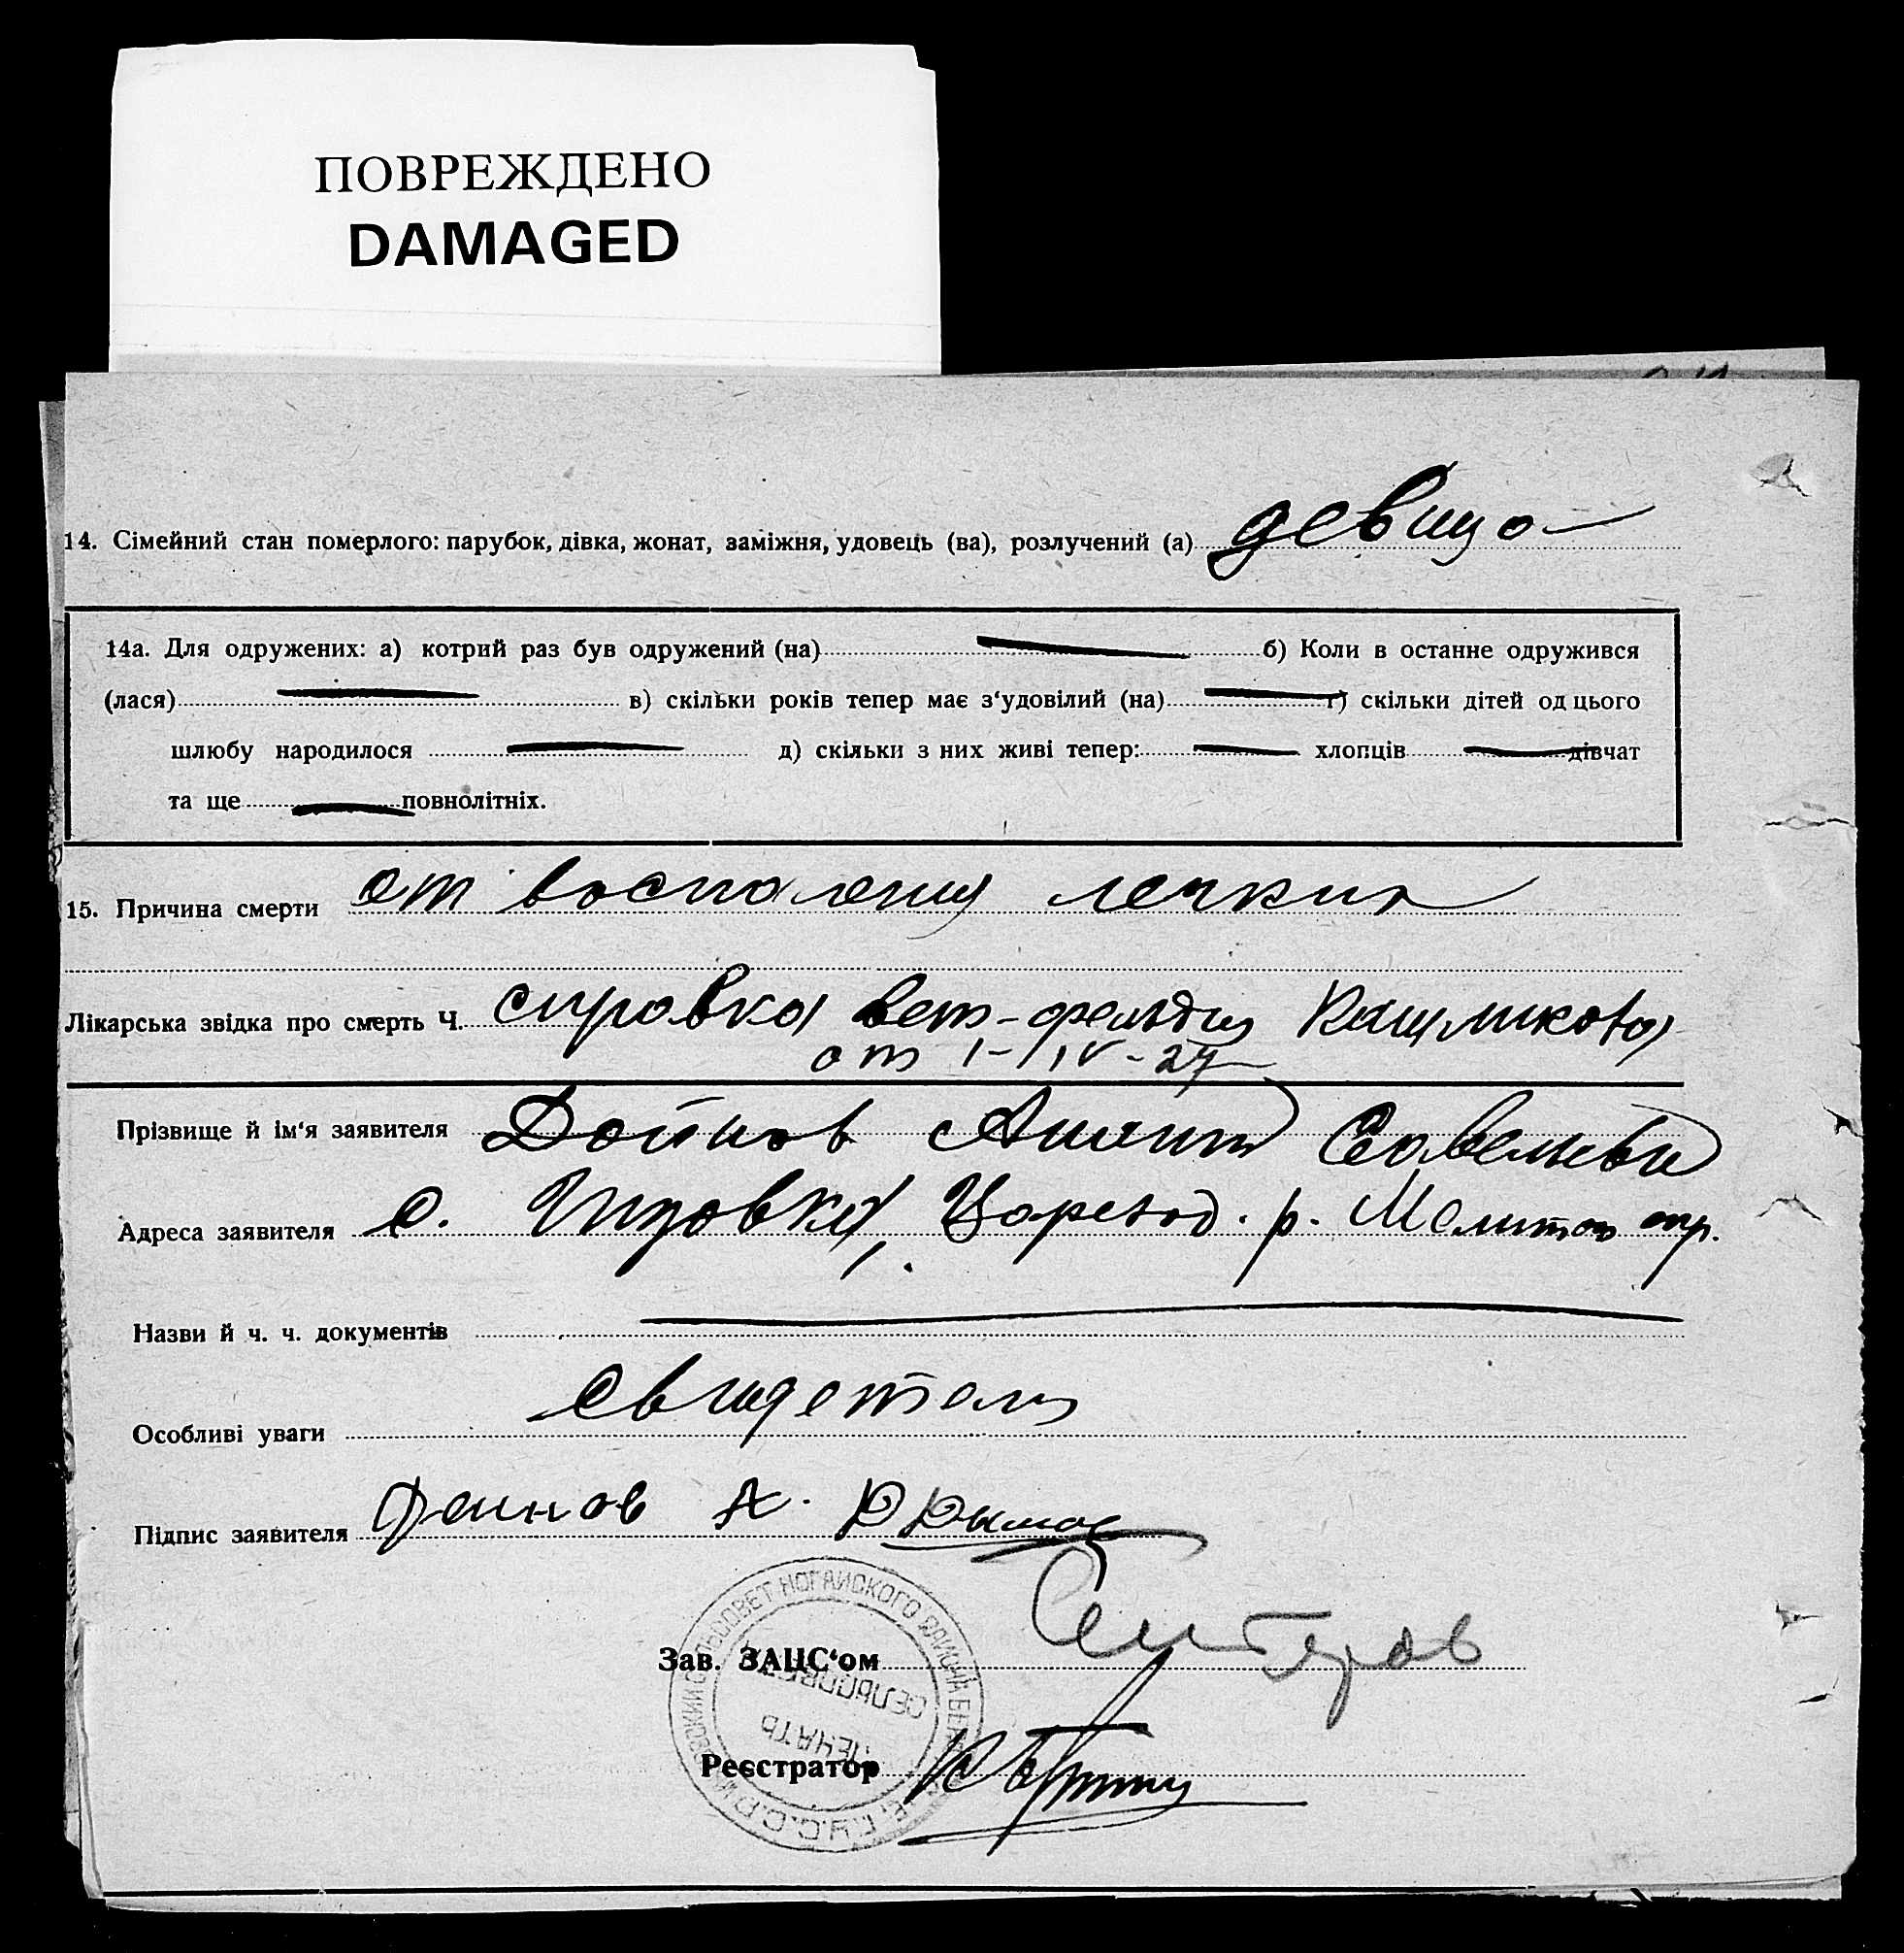 ПОВРЕЖДЕНО
DAMAGED
14. Сімейний стан померлого: парубок, дівка, жонат, заміжня, удовець (ва), розлучений (а) девица
14а. Для одружених: а) котрий раз був одружений (на) б) Коли в останне одружився
(лася) в) скільки років тепер має з‘удовілий (на) г) скільки дітей од цього
шлюбу народилося д) скільки з них живі тепер: хлопців дівчат
та ще повнолітніх.
15. Причина смерти от воспаления легких
Лікарська звідка про смерть Ч. справка вет-фельдш
от 1-IV-27
Прізвище й ім‘я заявителя Дойнов Савельев
Адреса заявителя с. Гизовка, Царевод. р. Мелитоп окр.
Назви й ч. ч. документів
Особливі уваги свидетели
Підпис заявителя Даинов А.
Зав. ЗАЦС‘ом
Реєстратор
СЕЛЬСОВЕТ НОГАЙСКОГО
ПЕЧАТЬ
СЕЛЬСОВЕТА